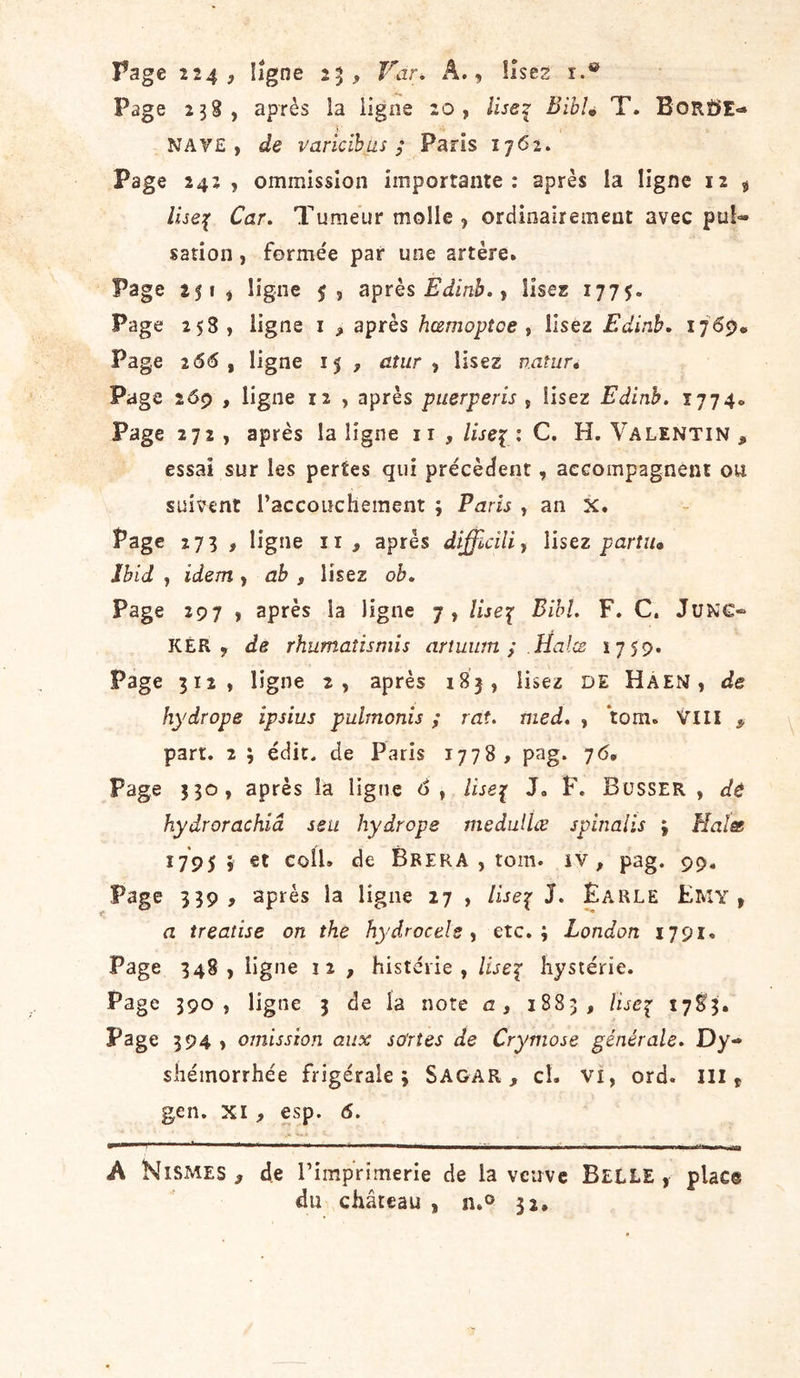 Page 224, ligne 23, Var. A., lisez 1.°
Page 238, après la ligne 20, lisez Bibl. T. BORDE-
NAVE, de varicibus ; Paris 1762.
Page 242, ommission importante : après la ligne 12,
lisez Car. Tumeur molle, ordinairement avec pul-
sation, formée par une artère.
Page 251, ligne 5, après Edinb., lisez 1775.
Page 258, ligne 1, après hæmoptoe, lisez Edinb. 1769.
Page 266, ligne 15, atur, lisez natur.
Page 269, ligne 12, après puerperis, lisez Edinb. 1774.
Page 272, après la ligne 11, lisez : C. H. VALENTIN,
essai sur les pertes qui précèdent, accompagnent ou
suivent l'accouchement ; Paris, an X.
Page 273, ligne 11, après difficili, lisez partu.
Ibid, idem, ab, lisez ob.
Page 297, après la ligne 7, lisez Bibl. F. C. JUNC-
KER, de rhumatismis artuum ; Halæ 1759.
Page 312, ligne 2, après 183, lisez DE HAEN, de
hydrope ipsius pulmonis ; rat. med., tom. VIII,
part. 2 ; édit. de Paris 1778, pag. 76.
Page 330, après la ligne 6, lisez J. F. BUSSER, de
hydrorachiâ seu hydrope medullæ spinalis ; Halæ
1795 ; et coll. de BRERA, tom. IV, pag. 99.
Page 339, après la ligne 27, lisez J. EARLE EMY,
a treatise on the hydrocele, etc. ; London 1791.
Page 348, ligne 12, histérie, lisez hystérie.
Page 390, ligne 3 de la note a, 1883, lisez 1783.
Page 394, omission aux sortes de Crymose générale. Dy-
shémorrhée frigérale ; SAGAR, cl. VI, ord. III,
gen. XI, esp. 6.
A NISMES, de l'imprimerie de la veuve BELLE, place
du château, n.° 32.